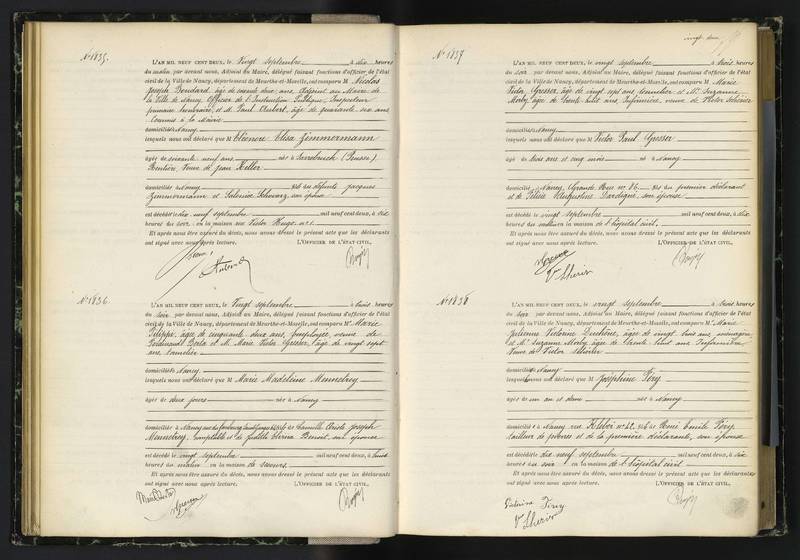 N° 1835.
L'AN MIL NEUF CENT DEUX, le Vingt septembre à dix heures
du matin, par devant nous, Adjoint au Maire, délégué faisant fonctions d'officier de l'état
civil de la Ville de Nancy, département de Meurthe-et-Moselle, ont comparu M Nicolas
Joseph âgé de deux ans, Adjoint au Maire de
la Ville de Nancy, Officier de l'Instruction Publique, Inspecteur
primaire honoraire, et M. Paul Aubert, âgé de quarante six ans
commis à la Mairie
domiciliés à Nancy
lesquels nous ont déclaré que M Eléonore Elisa Zimmermann
âgée de soixante neuf ans née à Sarrebruck (Prusse)
Rentière, Veuve de Jean Keller
domiciliée à Nancy fille des défunts Jacques
Zimmermann et Salomée Schwarz, son épouse
est décédée le dix neuf septembre mil neuf cent deux, à
heures du soir en la maison rue Victor Hugo n°
Et après nous être assuré du décès, nous avons dressé le présent acte que les déclarants
ont signé avec nous après lecture. L'OFFICIER DE L'ÉTAT CIVIL,
N° 1836.
L'AN MIL NEUF CENT DEUX, le Vingt septembre à trois heures
du soir par devant nous, Adjoint au Maire, délégué faisant fonctions d'officier de l'état
civil de la Ville de Nancy, département de Meurthe-et-Moselle, ont comparu Me Marie
Philippe, âgée de cinquante deux ans, employée, veuve de
Ferdinand et M. Marie Victor Gresser, âgé de vingt sept
ans, tonnelier
domiciliés à Nancy
lesquels nous ont déclaré que M Marie Madeleine Mennetrey
âgée de deux jours née à Nancy
domiciliée à Nancy fille de Camille Joseph
Mennetrey, comptable et de Benoit, son épouse
est décédée le vingt septembre mil neuf cent deux, à
heures du matin en la maison de secours
Et après nous être assuré du décès, nous avons dressé le présent acte que les déclarants
ont signé avec nous après lecture. L'OFFICIER DE L'ÉTAT CIVIL,
vingt deux
N° 1837
L'AN MIL NEUF CENT DEUX, le vingt septembre à trois heures
du soir par devant nous, Adjoint au Maire, délégué faisant fonctions d'officier de l'état
civil de la Ville de Nancy, département de Meurthe-et-Moselle, ont comparu M Marie
Victor Gresser, âgé de vingt sept ans, tonnelier et Me Suzanne
Morly, âgée de trente huit ans, infirmière, veuve de Victor
domiciliés à Nancy
lesquels nous ont déclaré que M Victor Paul Gresser
âgé de trois ans et cinq mois né à Nancy
domicilié à Nancy, Grande Rue n° 86 fils du premier déclarant
et de Augustine son épouse
est décédé le vingt septembre mil neuf cent deux, à dix
heures du matin en la maison de l'hôpital civil,
Et après nous être assuré du décès, nous avons dressé le présent acte que les déclarants
ont signé avec nous après lecture. L'OFFICIER DE L'ÉTAT CIVIL,
Gresser
N° 1838
L'AN MIL NEUF CENT DEUX, le vingt septembre à trois heures
du soir par devant nous, Adjoint au Maire, délégué faisant fonctions d'officier de l'état
civil de la Ville de Nancy, département de Meurthe-et-Moselle, ont comparu Me Marie
Julienne Victorine âgée de vingt trois ans ménagère
et Me Suzanne Morly âgée de trente huit ans infirmière
Veuve de Victor
domiciliées à Nancy
lesquels nous ont déclaré que M Joséphine Féry
âgée de un an et demi née à Nancy
domiciliée à Nancy, rue Kléber n° 62, fille de René Emile Féry,
tailleur de pierres et de la première déclarante, son épouse
est décédée le dix neuf septembre mil neuf cent deux, à six
heures du soir en la maison de l'hôpital civil
Et après nous être assuré du décès, nous avons dressé le présent acte que les déclarants
ont signé avec nous après lecture. L'OFFICIER DE L'ÉTAT CIVIL,
Victorine Féry